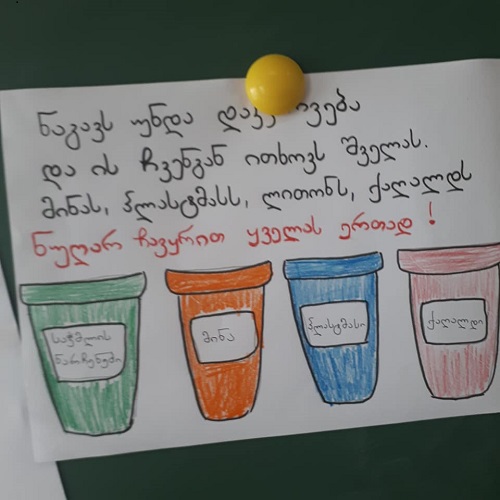 ნაგავს უნდა
და ის ჩვენგან ითხოვს შველას.
მინას, პლასტმასს, ლითონს, ქაღალდს
ნუღარ ჩავყრით ყველას ერთად !
საჭმლის
ნარჩენები
მინა
პლასტმასი
ქაღალდი